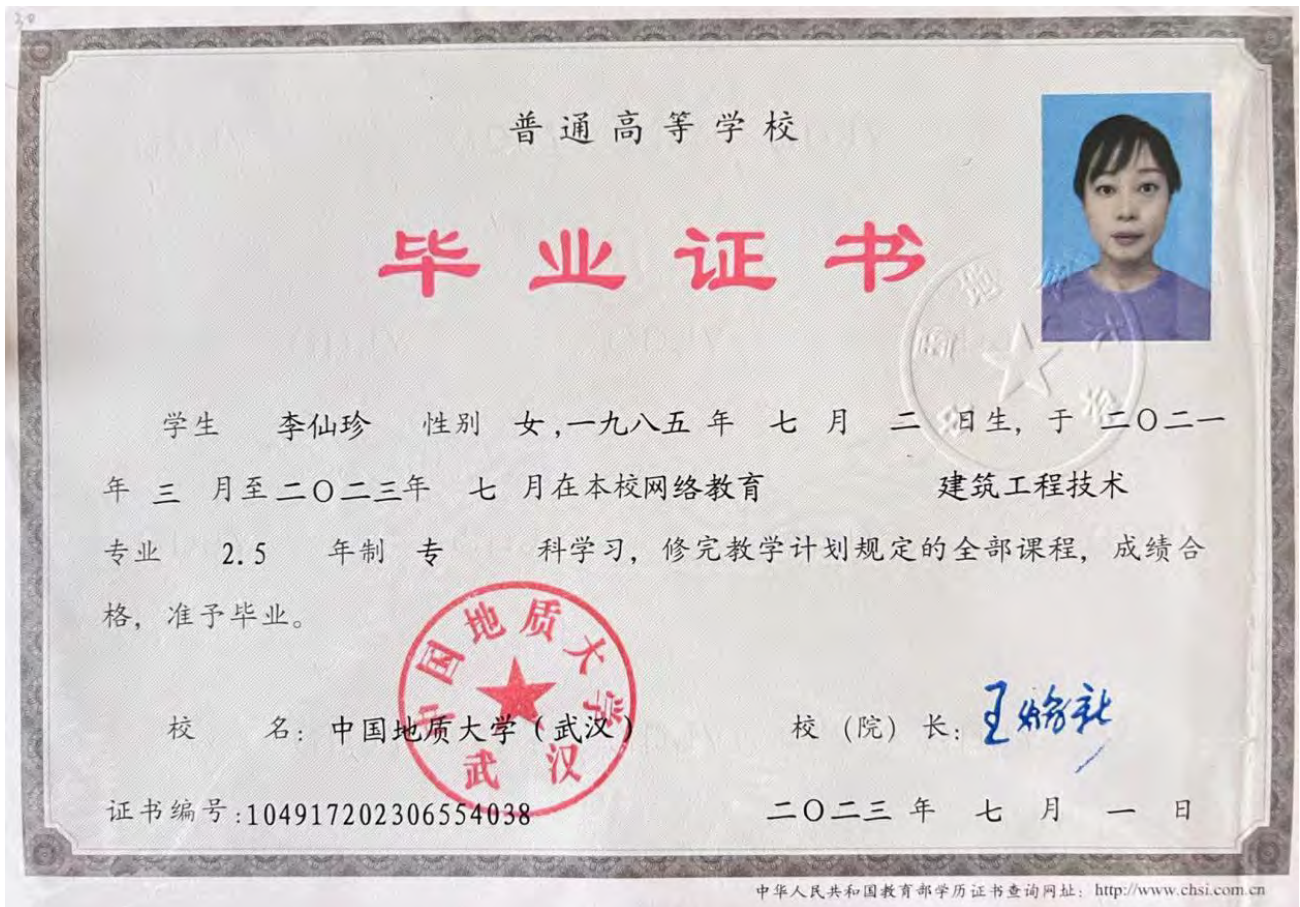 普通高等学校
毕业证书
学生 李仙珍 性别 女,一九八五年 七 月 二 日生, 于 二〇二一
年 三 月至二〇二三年 七 月在本校网络教育 建筑工程技术
专业 2.5 年制 专 科学习, 修完教学计划规定的全部课程, 成绩合
格, 准予毕业。
中国地质大学
武汉
校 名: 中国地质大学(武汉) 校(院)长:
证书编号:104917202306554038 二〇二三 年 七 月 一 日
中华人民共和国教育部学历证书查询网址: http://www.chsi.com.cn